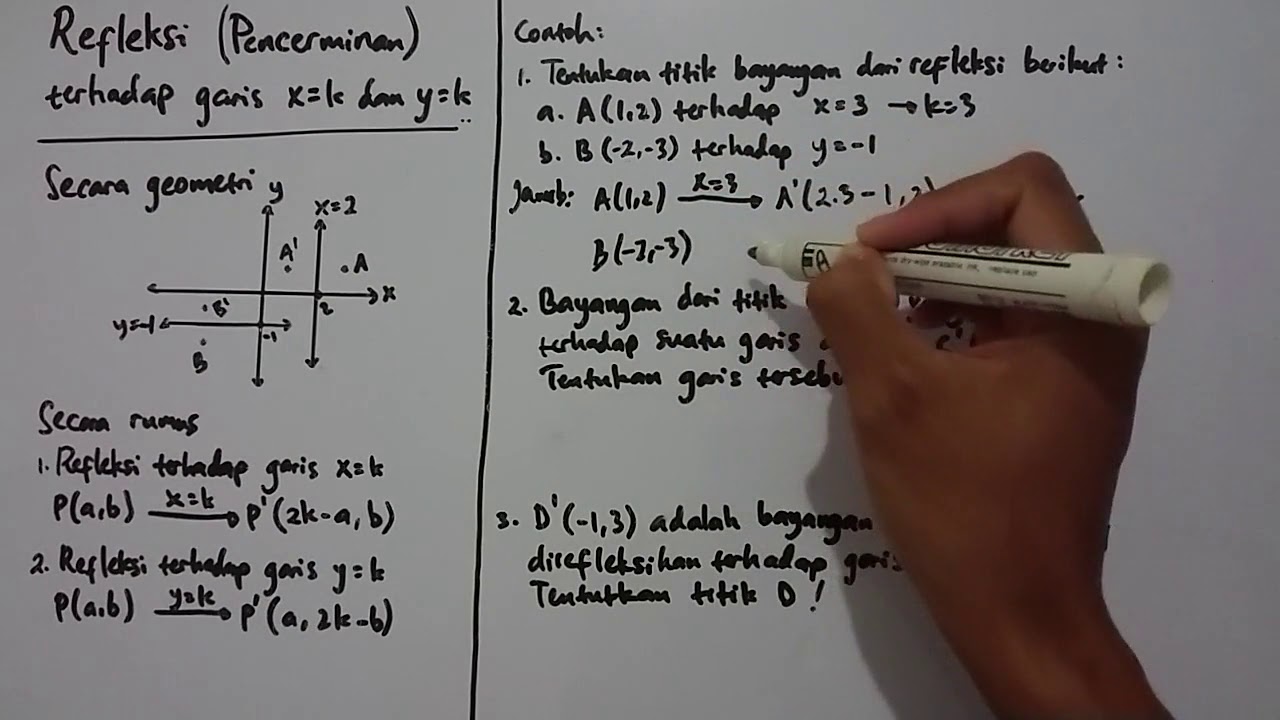 Refleksi (Pencerminan)
terhadap garis x=k dan y=k
Secara geometri
y
x=2
A'
A
x
B'
2
y=-1
-1
B
Secara rumus
1. Refleksi terhadap garis x=k
P(a,b) x=k P'(2k-a, b)
2. Refleksi terhadap garis y=k
P(a,b) y=k P'(a, 2k-b)
Contoh:
1. Tentukan titik bayangan dari refleksi berikut:
a. A(1,2) terhadap x=3 → k=3
b. B(-2,-3) terhadap y=-1
Jawab: A(1,2) x=3 A'(2.3-1,2)
B(-2,-3)
2. Bayangan dari titik
terhadap suatu garis
Tentukan garis
3. D'(-1,3) adalah bayangan
direfleksikan terhadap garis
Tentutkan titik D!